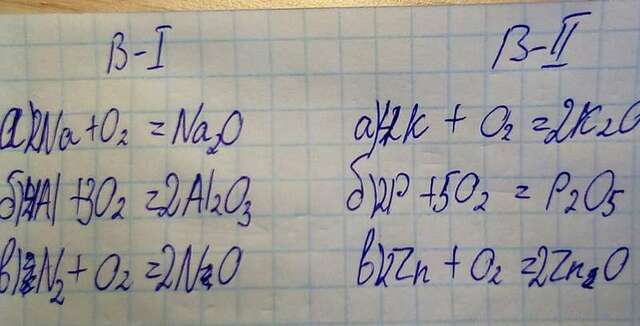 В-I
а) 2Na + O₂ = Na₂O
б) 4Al + 3O₂ = 2Al₂O₃
в) 2N₂ + O₂ = 2N₂O
В-II
а) 4K + O₂ = 2K₂O
б) 2P + 5O₂ = P₂O₅
в) 2Zn + O₂ = 2Zn₂O